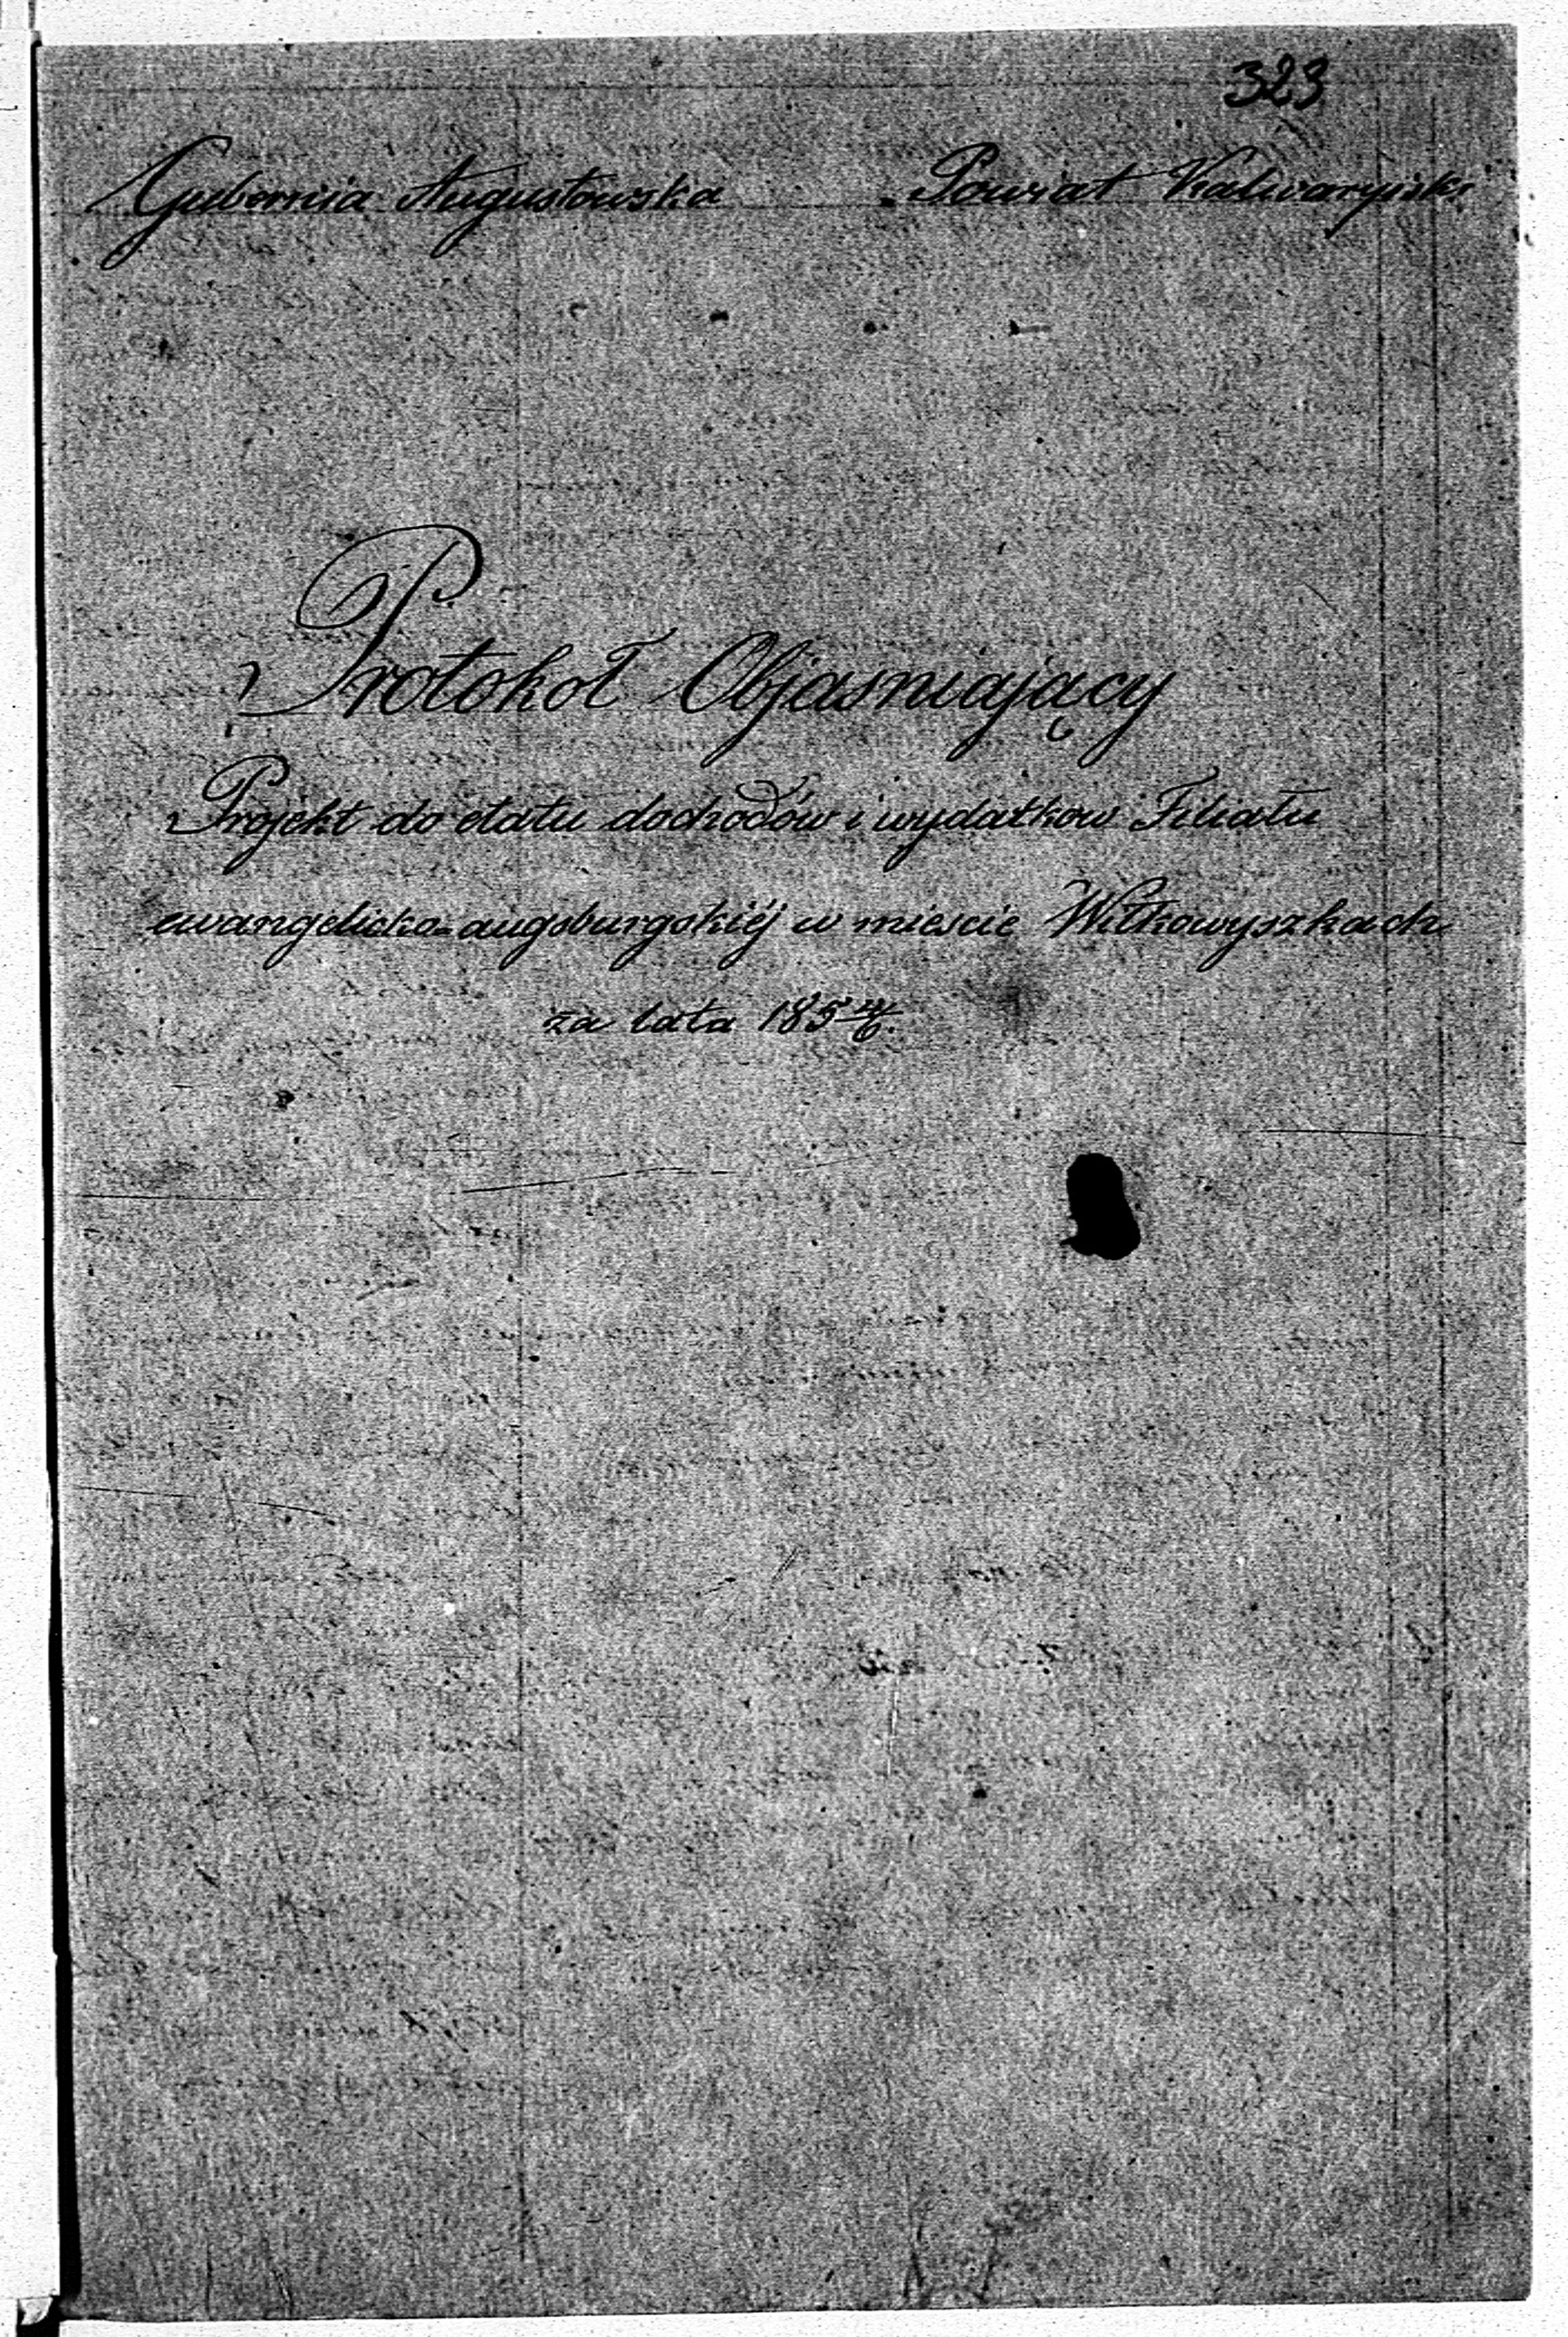 323
Gubernia Augustowska Powiat Kalwaryjski
Protokoł Objasniający
Projekt do etatu dochodów i wydatkow Filiału
ewangelicko-augsburgskiéj w miescie Wiłkowyszkach
za lata 185 4/6.